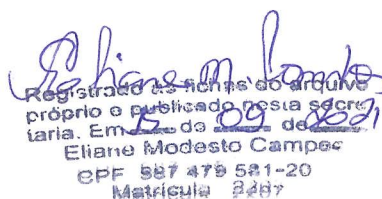 Eliane M. Campos
Registrado as fichas do arquivo
próprio e publicado nesta secre
taria. Em 15 de 09 de 2021
Eliane Modesto Campos
CPF 987 479 581-20
Matricula